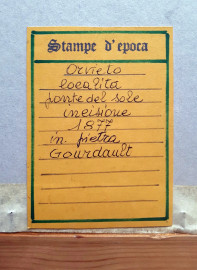 Stampe d'epoca
Orvieto
località
ponte del sole
incisione
1877
in pietra
Gourdault